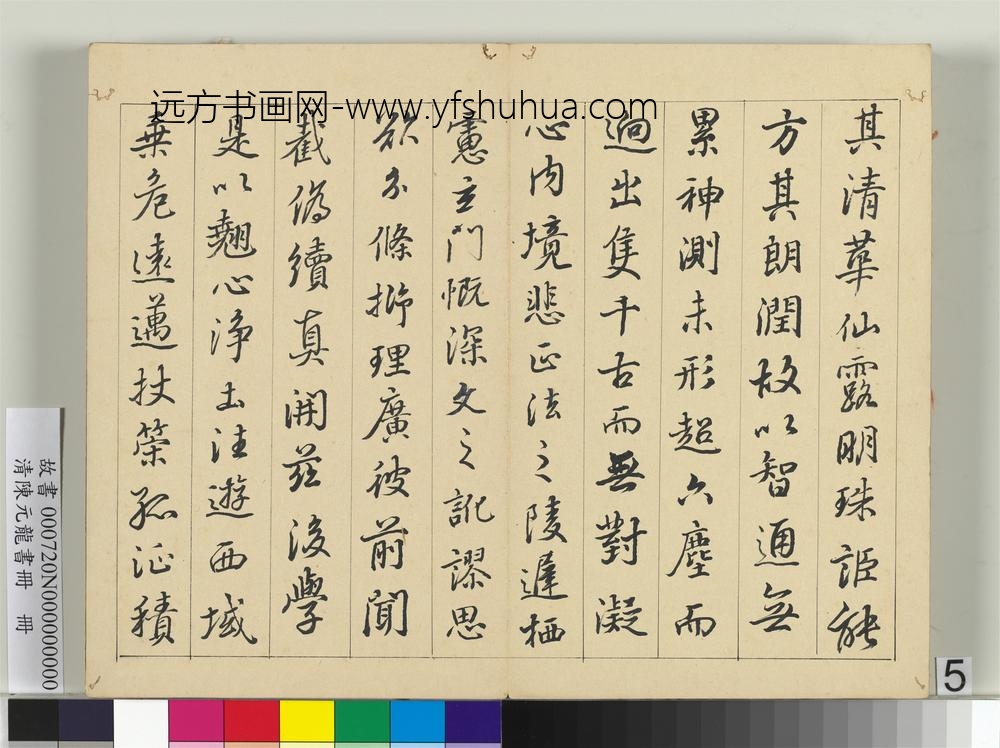 远方书画网-www.yfshuhua.com
其清華仙露明珠詎能
方其朗潤故以智通無
累神測未形超六塵而
迥出隻千古而無對凝
心內境悲正法之陵遲栖
慮玄門慨深文之訛謬思
欲分條析理廣彼前聞
截偽續真開茲後學
是以翹心淨土往遊西域
乘危遠邁杖策孤征積
故書 000720N000000000
清陳元龍書冊 冊
5